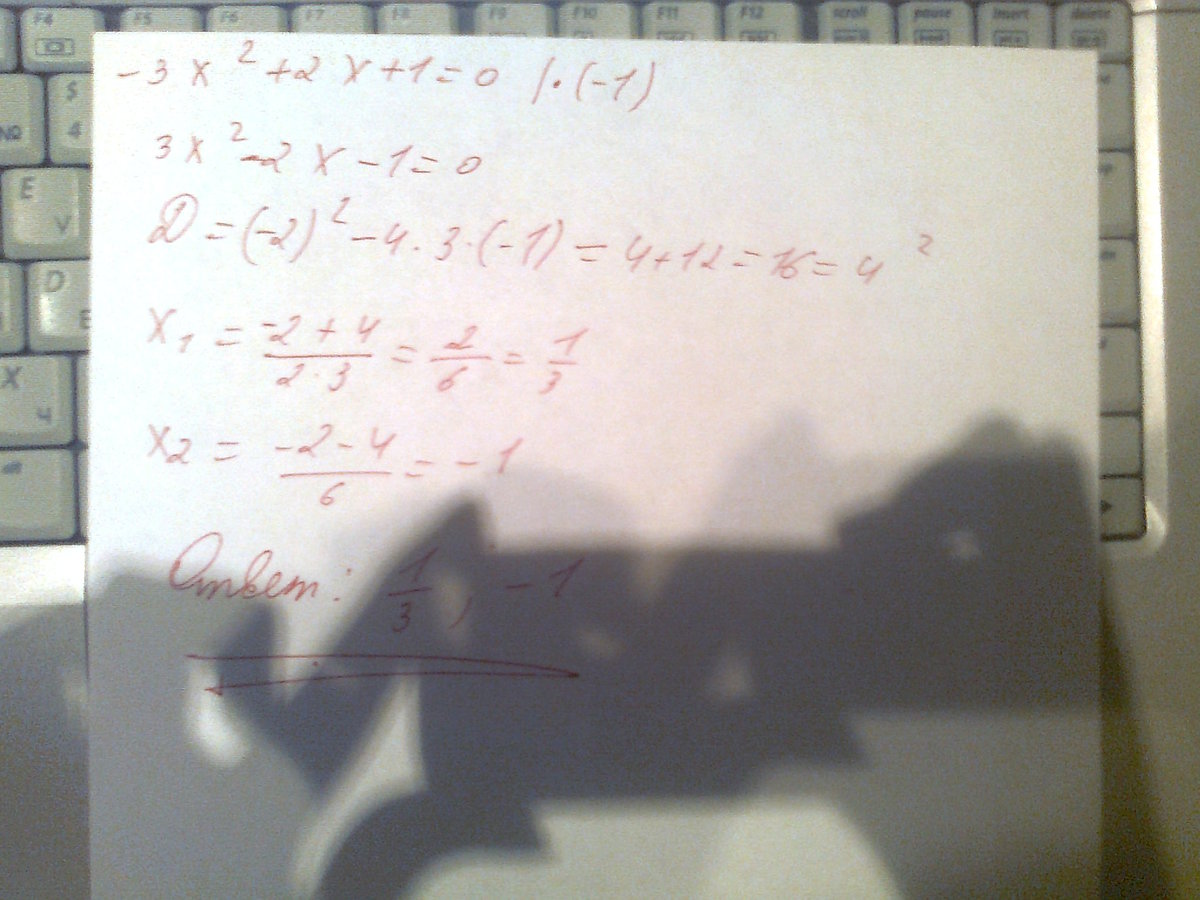 F4 F5 F6 F7 F8 F9 F10 F11 F12 scroll pause insert delete
-3x²+2x+1=0 /·(-1)
3x²-2x-1=0
D=(-2)²-4·3·(-1)=4+12=16=4²
x₁ = (-2+4)/(2·3) = 2/6 = 1/3
x₂ = (-2-4)/6 = -1
Ответ: 1/3, -1
S
4
E
V
D
X
Ч
alt